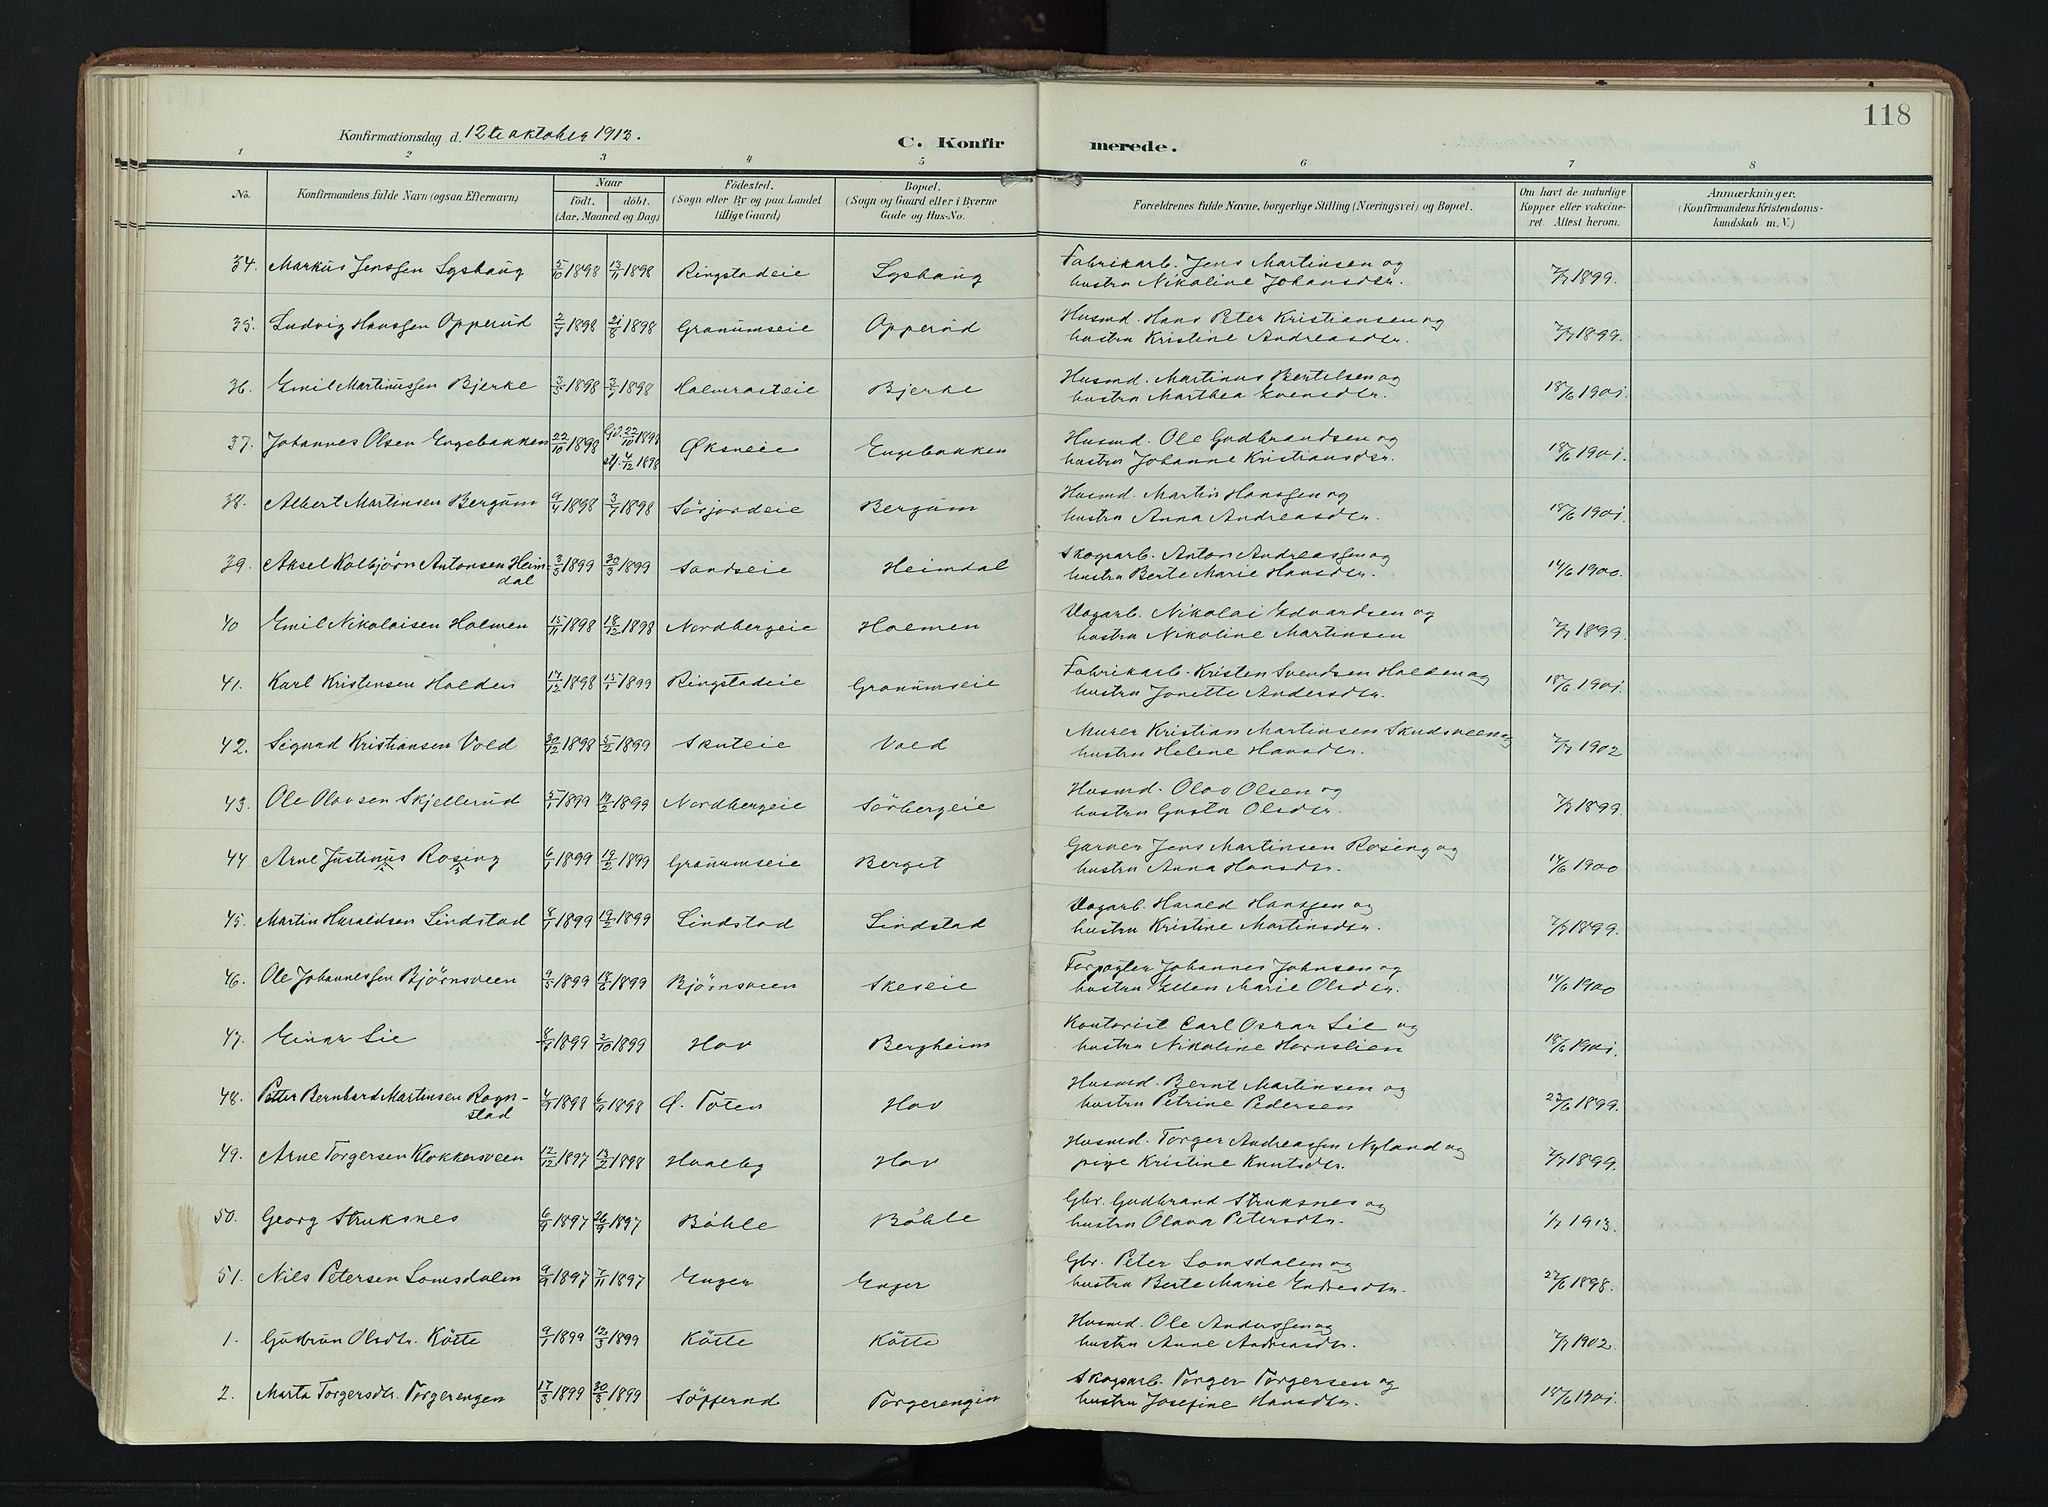 118
Konfirmationsdag d. 12te oktober 1913.
C. Konfirmerede.
1 2 3 4 5 6 7 8
No. Konfirmandens fulde Navn (ogsaa Efternavn) Naar födt. döbt. (Aar, Maaned og Dag) Födested. (Sogn eller By og paa Landet tillige Gaard) Bopæl. (Sogn og Gaard eller i Byerne Gade og Hus-No. Forældrenes fulde Navne, borgerlige Stilling (Næringsvei) og Bopæl. Om havt de naturlige Kopper eller vakcineret. Attest herom. Anmærkninger. (Konfirmandens Kristendomskundskab m. V.)
34. Markus Jenssen Lyshaug 5/10 1898 13/11 1898 Ringstadeie Lyshaug Fabrikarb. Jens Martinsen og
hustru Nikoline Johansdtr. 7/7 1899.
35. Ludvig Hanssen Opperud 2/7 1898 21/8 1898 Granumseie Opperud Husmd. Hans Peter Kristiansen og
hustru Kristine Andreasdtr. 7/7 1899.
36. Emil Martinussen Bjerke 3/5 1898 3/7 1898 Halmrasteie Bjerke Husmd. Martinus Bertelsen og
hustru Marthea Evensdtr. 18/6 1901.
37. Johannes Olsen Engebakken 22/10 1898 Gjd. 22/10 1898 stf. 4/12 1898 Øksneie Engebakken Husmd. Ole Gudbrandsen og
hustru Johanne Kristiansdtr. 18/6 1901.
38. Albert Martinsen Bergum 9/4 1898 3/7 1898 Sörjordeie Bergum Husmd. Martin Hanssen og
hustru Anna Andreasdtr. 18/6 1901.
39. Aksel Kolbjörn Antonsen Heimdal 3/3 1899 30/3 1899 Sandseie Heimdal Skogsarb. Anton Andreassen og
hustru Berte Marie Hansdtr. 14/6 1900.
40 Emil Nikolaisen Holmen 15/11 1898 18/12 1898 Nordbergeie Holmen Dagarb. Nikolai Edvardsen og
hustru Nikoline Martinsen 7/7 1899.
41. Karl Kristensen Holden 17/12 1898 15/1 1899 Ringstadeie Granumseie Fabrikarb. Kristen Svendsen Holden og
hustru Jonette Andersdtr. 18/6 1901.
42. Sigurd Kristiansen Vold 30/12 1898 5/2 1899 Skuteie Vold Murer Kristian Martinsen Skudsveen og
hustru Helene Hansdtr. 7/7 1902
43. Ole Olavsen Skjellerud 5/1 1899 19/2 1899 Nordbergeie Sörbergeie Husmd. Olav Olsen og
hustru Gusta Olsdtr. 7/7 1899.
44. Arne Justinus Rosing 6/1 1899 19/2 1899 Granumseie Berget Garver Jens Martinsen Rosing og
hustru Anna Hansdtr. 14/6 1900
45. Martin Haraldsen Lindstad 8/1 1899 19/2 1899 Lindstad Lindstad Dagarb. Harald Hanssen og
hustru Kristine Martinsdtr. 7/7 1899.
46. Ole Johannessen Bjørnsveen 9/5 1899 18/6 1899 Björnsveen Skeseie Forpagter Johannes Johnsen og
hustru Ellen Marie Olsdtr. 14/6 1900
47. Einar Lie 1899 2/10 1899 Hov Bergheim Kontorist Carl Oskar Lie og
hustru Nikoline Hornslien 18/6 1901.
48. Petter Bernhard Martinsen Rognstad 4/9 1898 6/11 1898 Ø. Toten Hov Husmd. Bernt Martinsen og
hustru Petrine Pedersen 22/6 1899.
49. Arne Torgersen Klokkersveen 12/12 1897 13/2 1898 Hvalby Hov Husmd. Torger Andreassen Nyland og
pige Kristine Knutsdtr. 7/7 1899.
50. Georg Struksnes 6/9 1897 26/9 1897 Böhle Böhle Gbr. Gudbrand Struksnes og
hustru Olava Petersdtr. 1/7 1913.
51. Nils Petersen Lomsdalen 9/9 1897 7/11 1897 Enger Enger Gbr. Peter Lomsdalen og
hustru Berte Marie Endresdtr. 22/6 1898.
1. Gudrun Olsdtr. Kötte 9/1 1899 12/3 1899 Kötte Kötte Husmd. Ole Anderssen og
hustru Anne Andreasdtr. 7/7 1902
2. Marta Torgersdtr. Torgerengen 17/3 1899 30/3 1899 Söpperud Torgerengen Skogsarb. Torger Torgersen og
hustru Josefine Hansdtr. 18/6 1901.